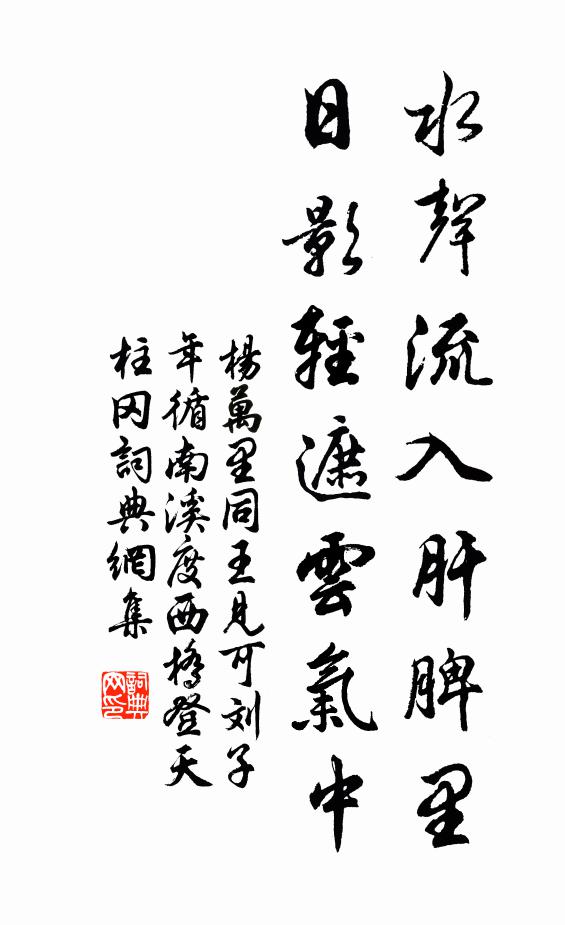 水聲流入肝脾里
日影輕遮雲氣中
楊萬里同王見可刘子
年循南溪度西橋登天
柱冈詞典網集
詞典网印